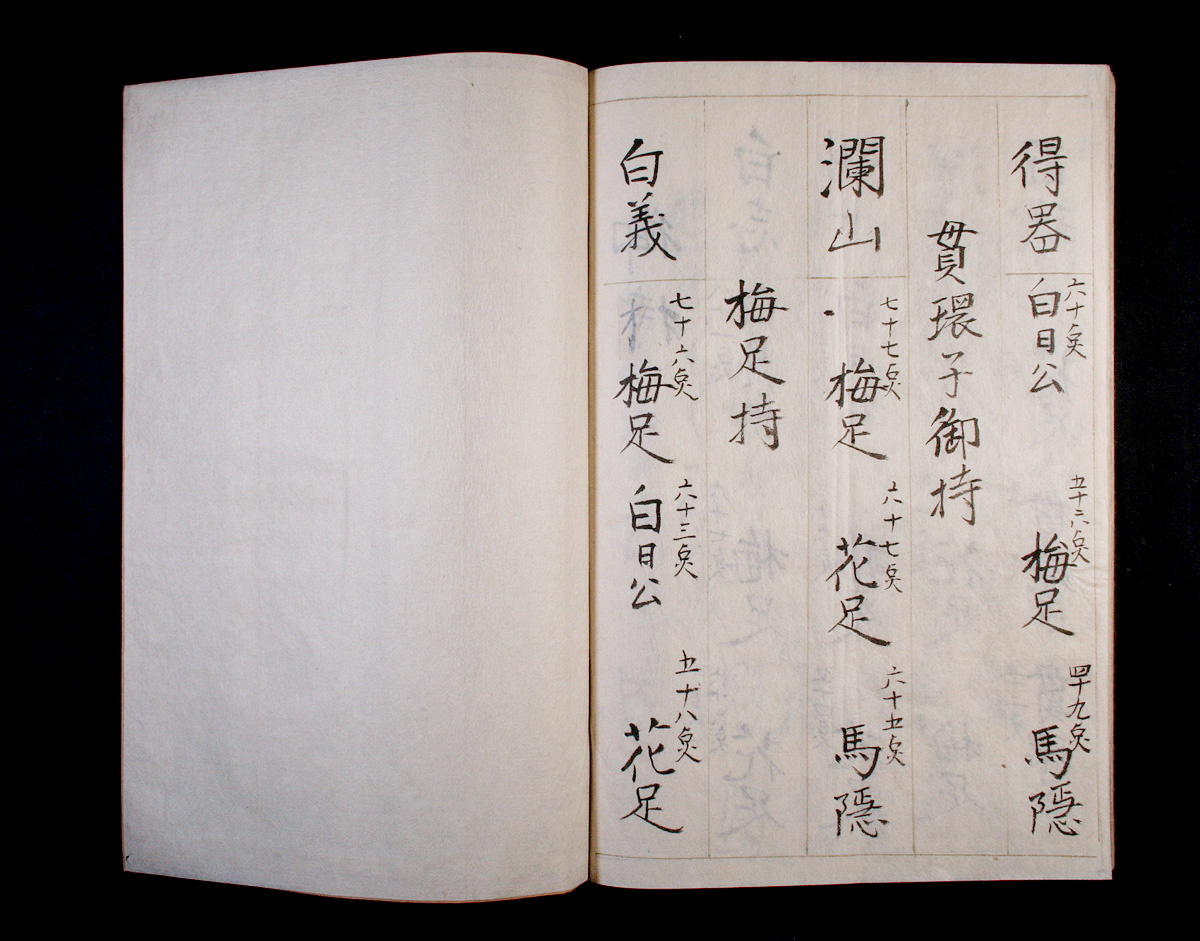 得器
六十点
白日公
五十六点
梅足
四十九点
馬隠
貫環子御持
瀾山
七十七点
梅足
六十七点
花足
六十五点
馬隠
梅足持
白義
七十六点
梅足
六十三点
白日公
五十八点
花足